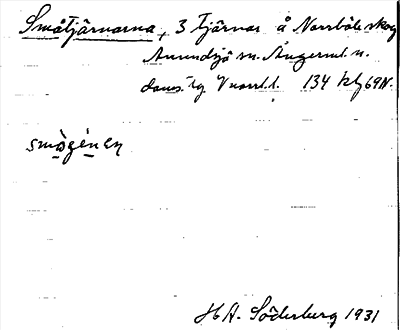 Småtjärnarna, 3 tjärnar å Norrböle skog
Anundsjö sn. Ångerml. n.
doms.lg V norrl.l. 134 kbl 69 N.
smògénan
H A. Söderberg 1931